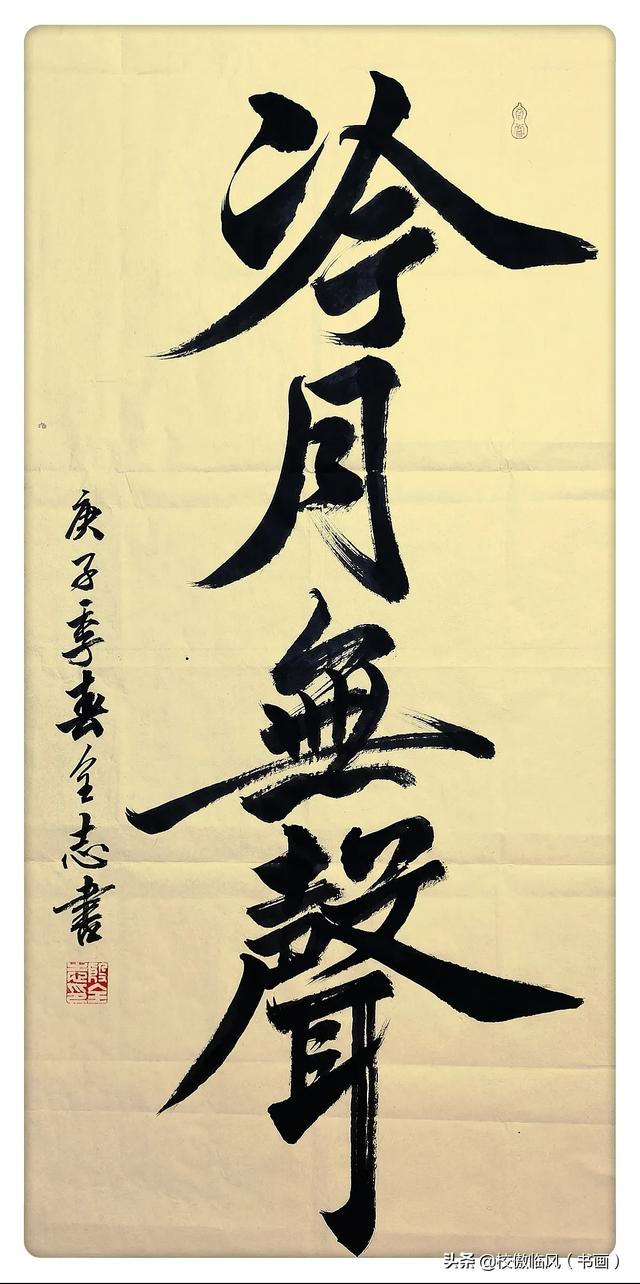 冷月無聲
庚子季春全志書
殷全志印
头条 @校傲临风（书画）